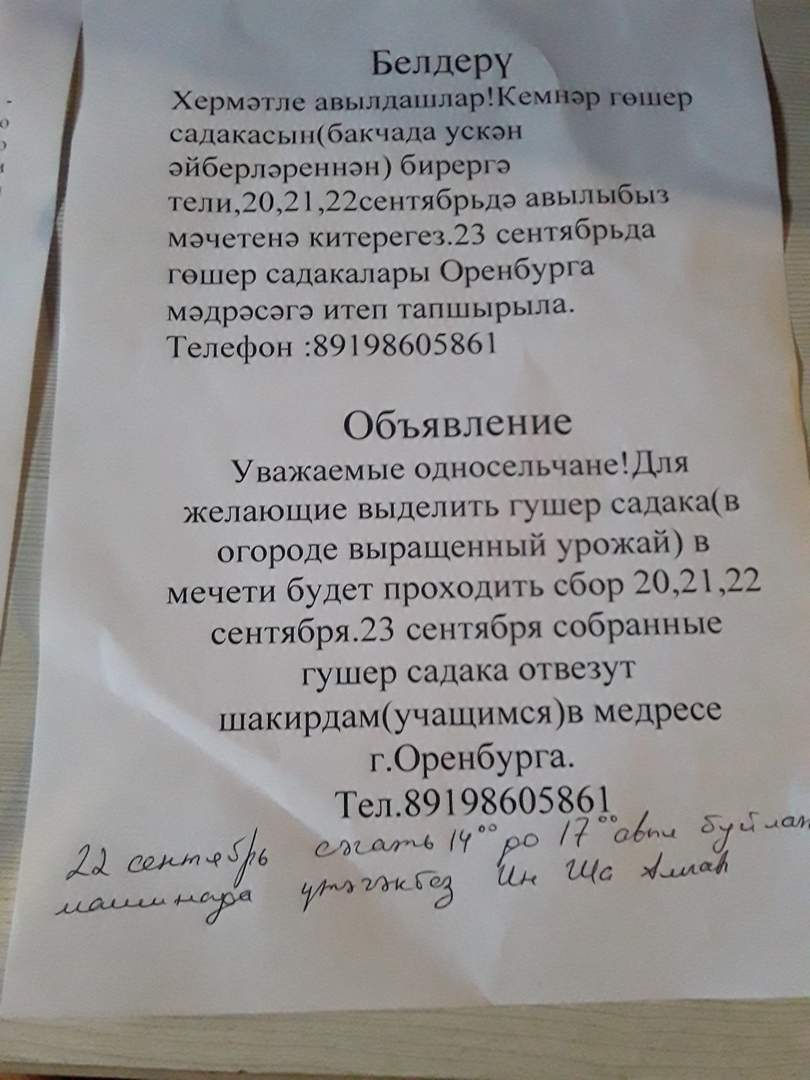 Белдерү
Хермәтле авылдашлар!Кемнәр гөшер
садакасын(бакчада ускән
әйберләреннән) бирергә
тели,20,21,22сентябрьдә авылыбыз
мәчетенә китерегез.23 сентябрьда
гөшер садакалары Оренбурга
мәдрәсәгә итеп тапшырыла.
Телефон :89198605861
Объявление
Уважаемые односельчане!Для
желающие выделить гушер садака(в
огороде выращенный урожай) в
мечети будет проходить сбор 20,21,22
сентября.23 сентября собранные
гушер садака отвезут
шакирдам(учащимся)в медресе
г.Оренбурга.
Тел.89198605861
22 сентябрь сәгать 14⁰⁰ до 17⁰⁰ авыл буйлап
машинада үтәчәкбез Ин Ша Аллаh